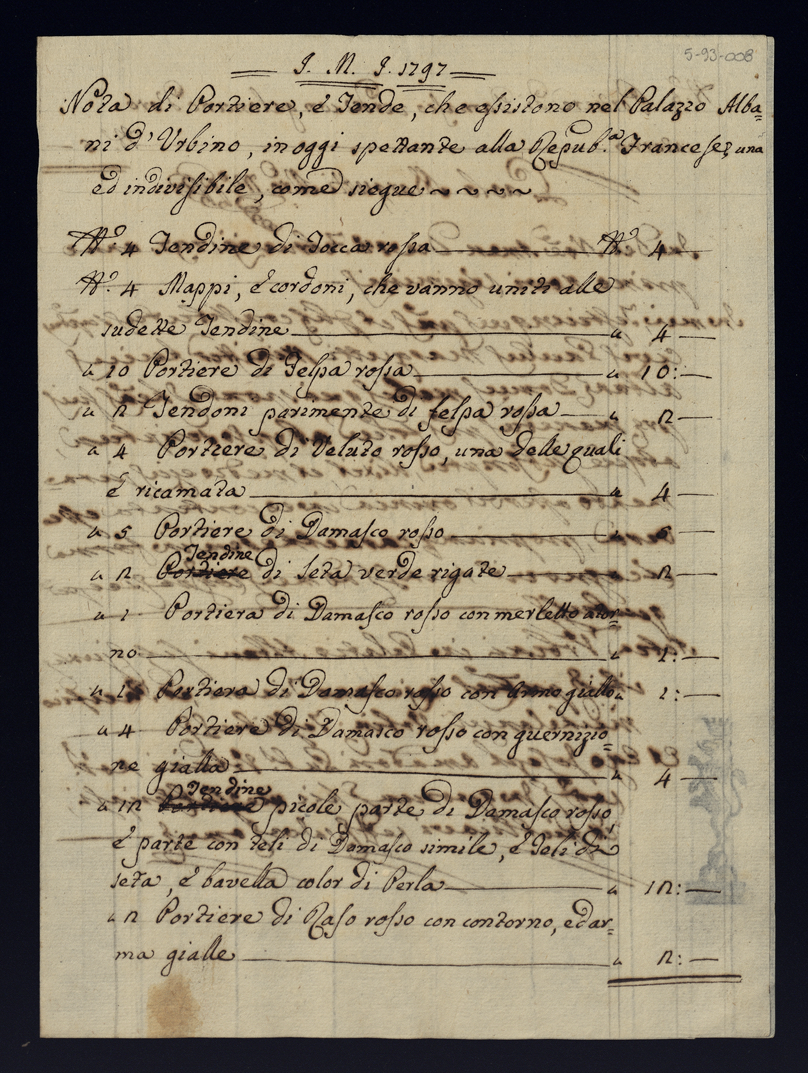 5-93-008
J. M. J. 1797
Nota di Portiere, e Tende, che esistono nel Palazzo Alba=
ni d'Urbino, in oggi spettante alla Repub.a Francese, una
ed indivisibile, come siegue ~ ~ ~ ~
N.o 4 Tendine di Tocca rossa N.o 4
N.o 4 Mappi, e cordoni, che vanno uniti alle
sudette Tendine a 4
a 10 Portiere di Felpa rossa a 10:
a 2 Tendoni parimente di felpa rossa a 2
a 4 Portiere di Veluto rosso, una delle quali
è ricamata a 4
a 5 Portiere di Damasco rosso a 5
Tendine
a 2 Portiere di Seta verde rigate a 2
a 1 Portiera di Damasco rosso con merletto ator=
no a 1:
a 1 Portiera di Damasco rosso con Anno giallo a 1:
a 4 Portiere di Damasco rosso con guernizio=
ne gialla a 4
Tendine
a 12 Portiere picole parte di Damasco rosso,
e parte con teli di Damasco simile, e Teli di
seta, e bavella color di Perla a 12:
a 2 Portiere di Raso rosso con contorno, ed ar=
ma gialle a 2: